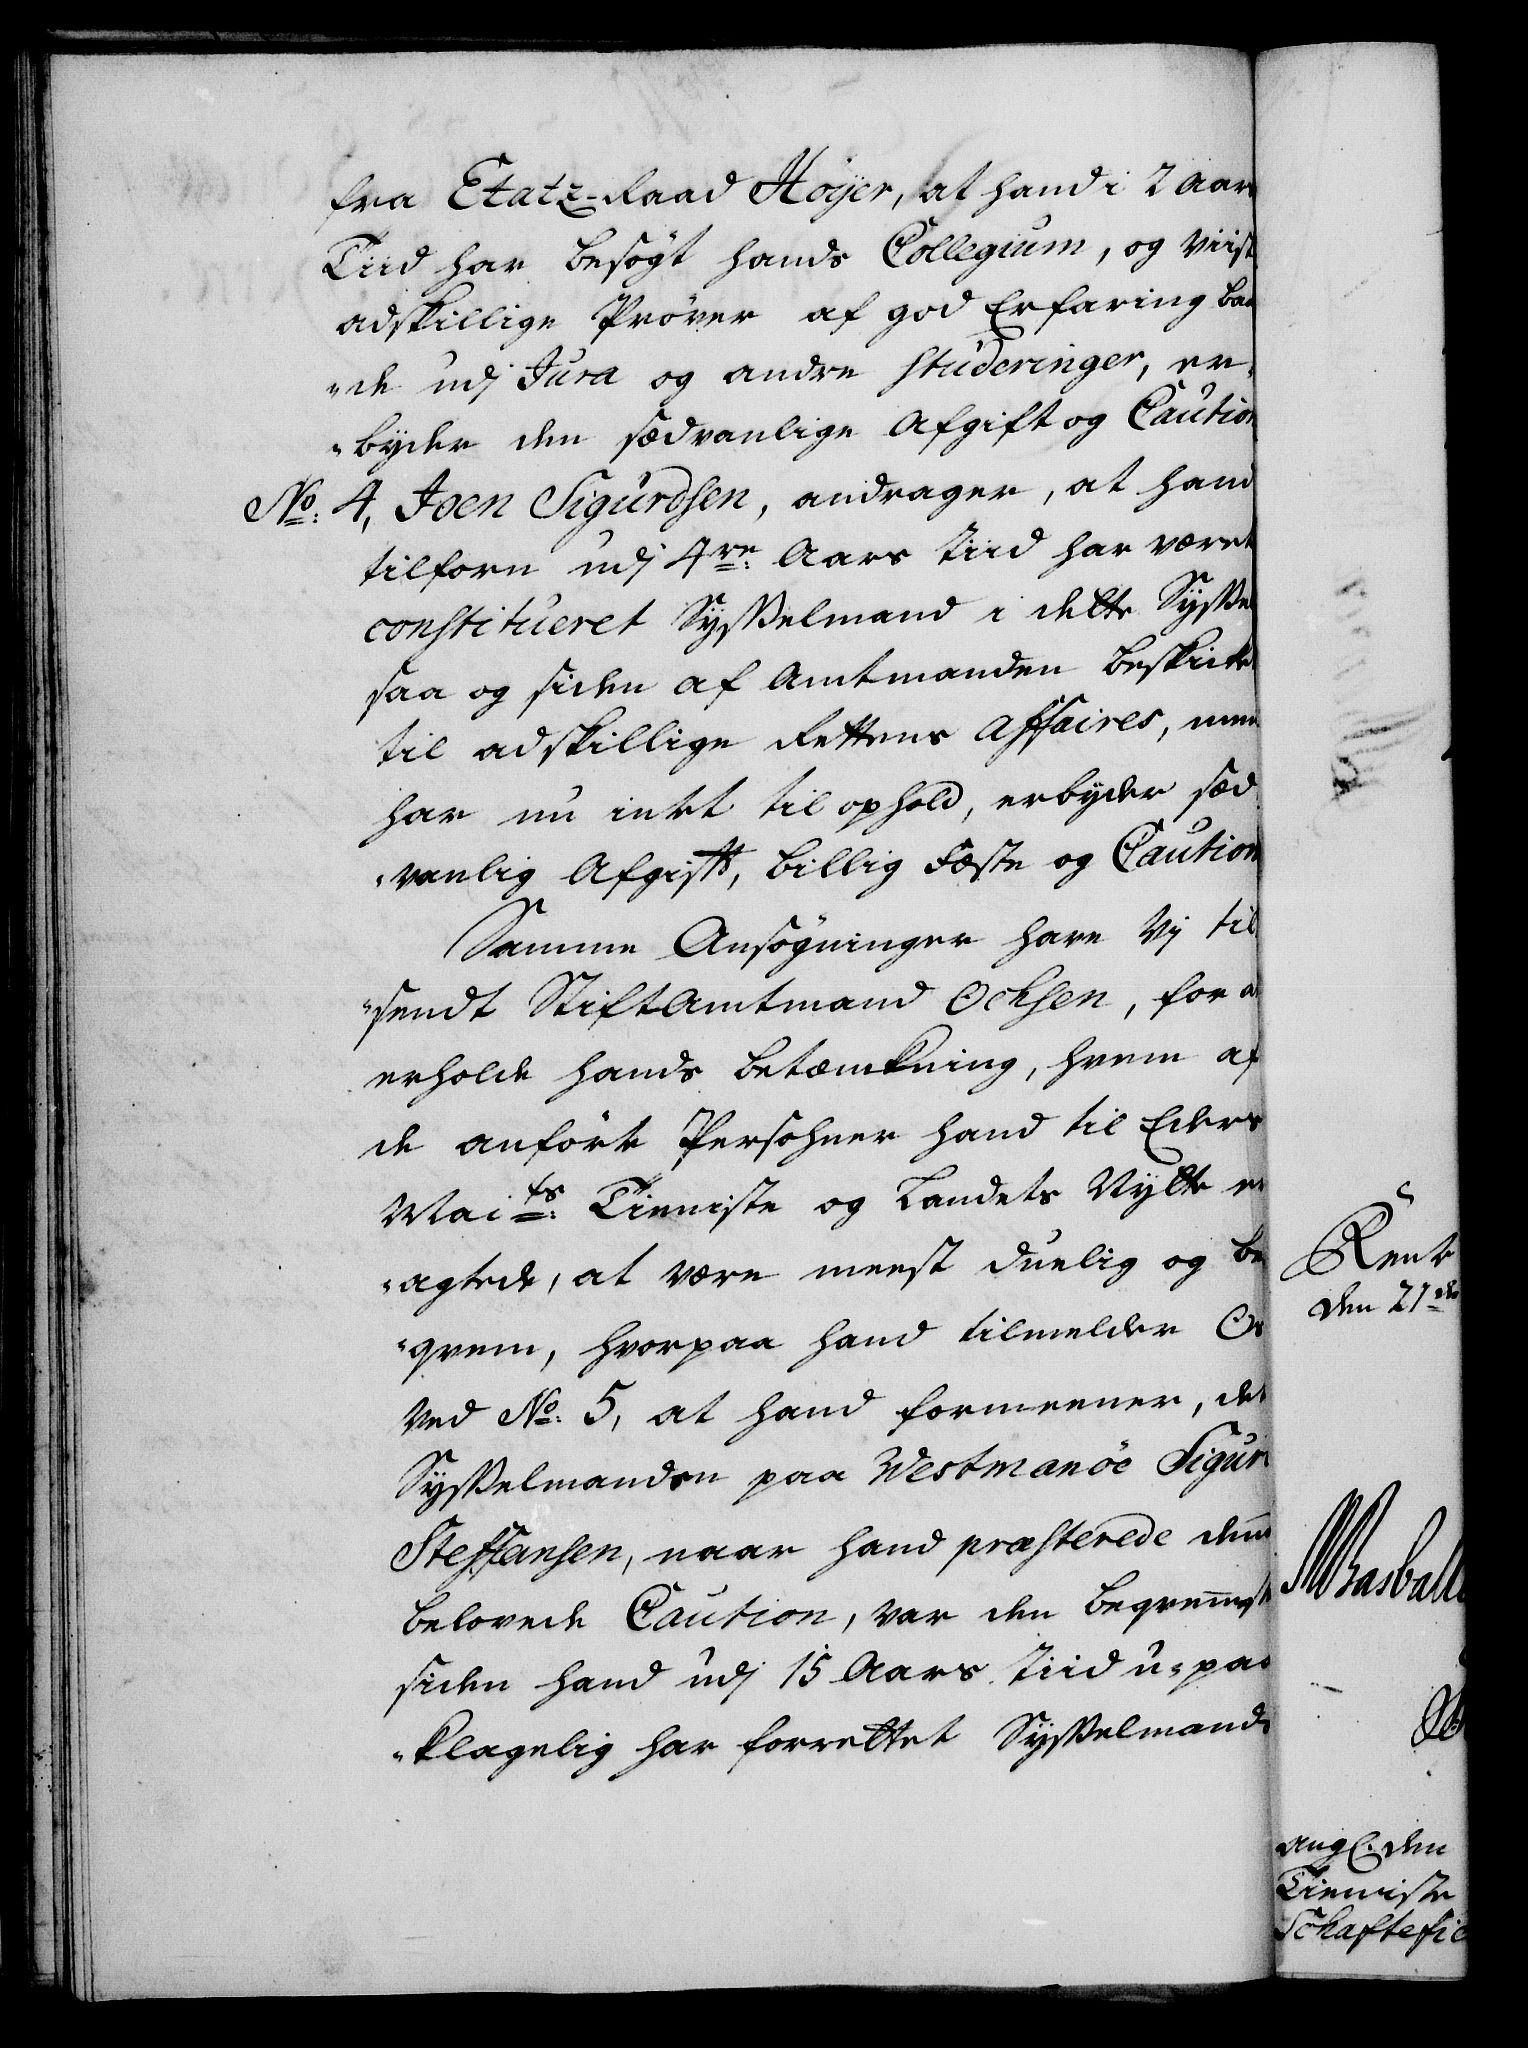 fra Etatz-Raad Höÿer, at hand i 2 Aars
Tiid har besögt hands Collegium, og viist
adskillige Prøver af god Erfaring baa
"de udj Jura og andre studeringer, er„
"bÿder den sædvanlige Afgift og Caution
No: 4, Joen Sigurdsen, andrager, at hand
tilforn udj 4re: Aars Tiid har været
constitueret Sÿsselmand i dette Sÿssel
saa og siden af Amtmanden beskicket
til adskillige Rettens affaires, men
har nu intet til ophold, erbÿder sæd
"vanlig Afgifft, billig Fæste og Caution
Samme Ansögninger have Vj til
"sendt Stiftamtmand Ochsen, for at
erholde hands betænkning, hvem af
de anförte Persohner hand til Eders
Maits: Tieniste og Landets Nÿtte er
"agtede, at være meest duelig og be
"qvem, hvorpaa hand tilmelder Os
ved No: 5, at hand formeener, det
Sÿsselmanden paa Westmanöe Sigur
Steffansen, naar hand præsterede den
belovede Caution, var den beqvemmeste
siden hand udj 15 Aars Tiid u-paa
"klagelig har forrettet Sÿsselmands
Rente
den 21de
ang: den
Tieniste
Schaftefie